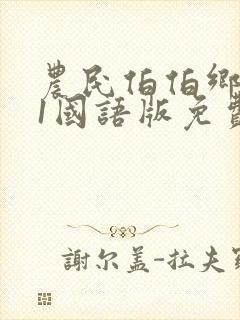 農民伯伯鄉
1國語版免費
謝尔盖-拉夫羅